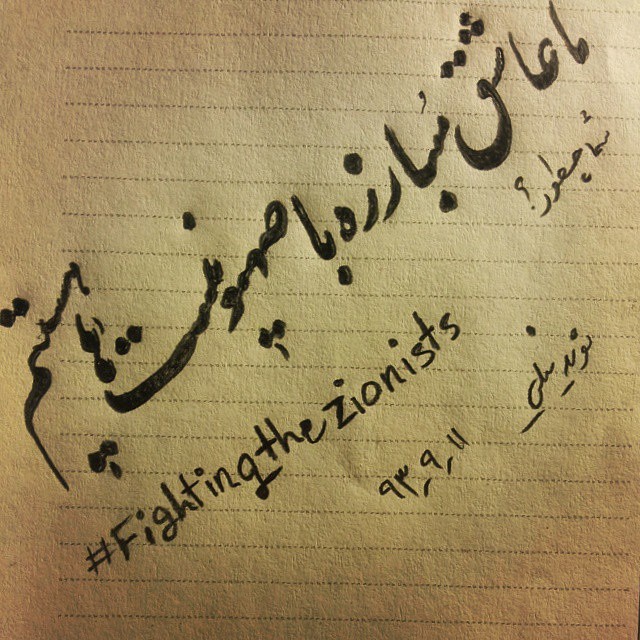 ما عاشق مُبارزه با صهیونیست‌ها هستیم
شما چطور؟
#Fightingthezionists
۹۳٫۹٫۱۱